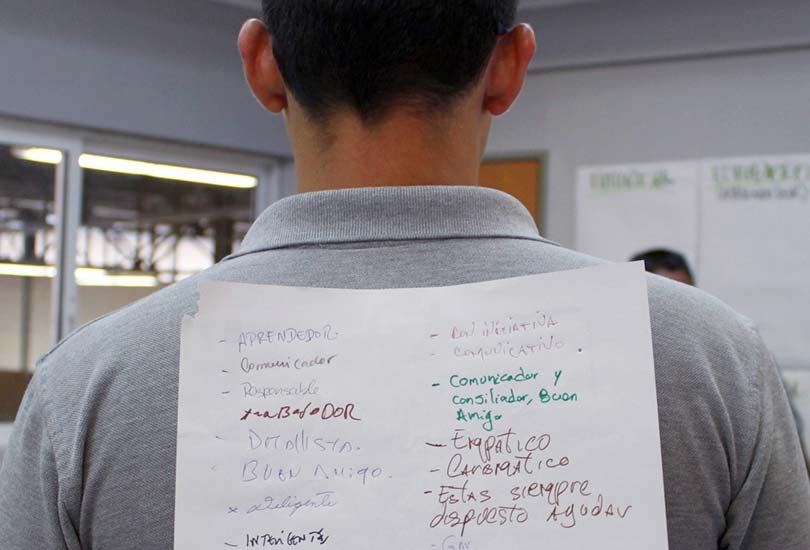 - APRENDEDOR.
- Comunicador
- Responsable
trabajaDOR
- Detallista.
- BUEN AMIGO.
x adiligente
- INTELIGENTE
- CON INICIATIVA
- COMUNICATIVO.
- Comunicador y
Consiliador, Buen
Amigo
- EMPÁTICO
- CARISMÁTICO
- Estas siempre
dispuesto AYUDAR